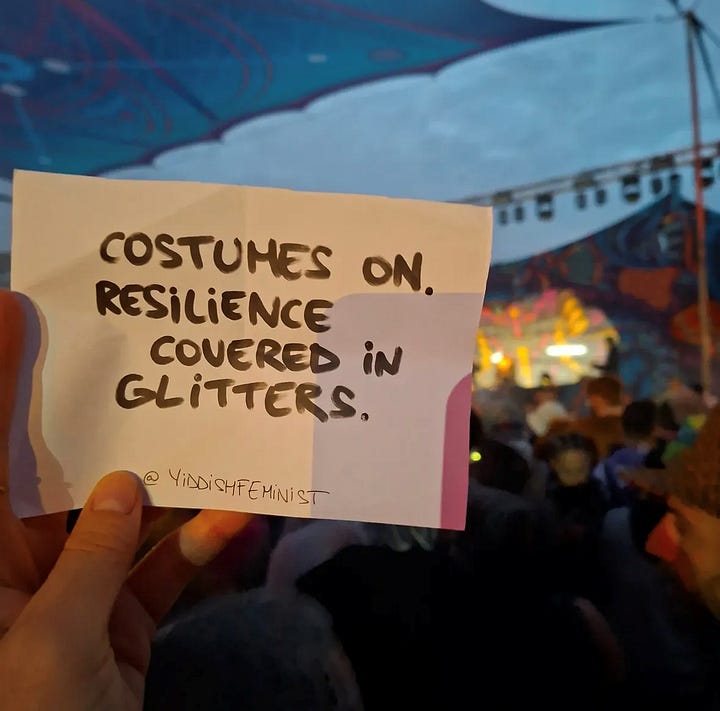 COSTUMES ON.
RESiLiENCE
COVERED iN
GLiTTERS.
@ YiDDiSHFEMiNiST